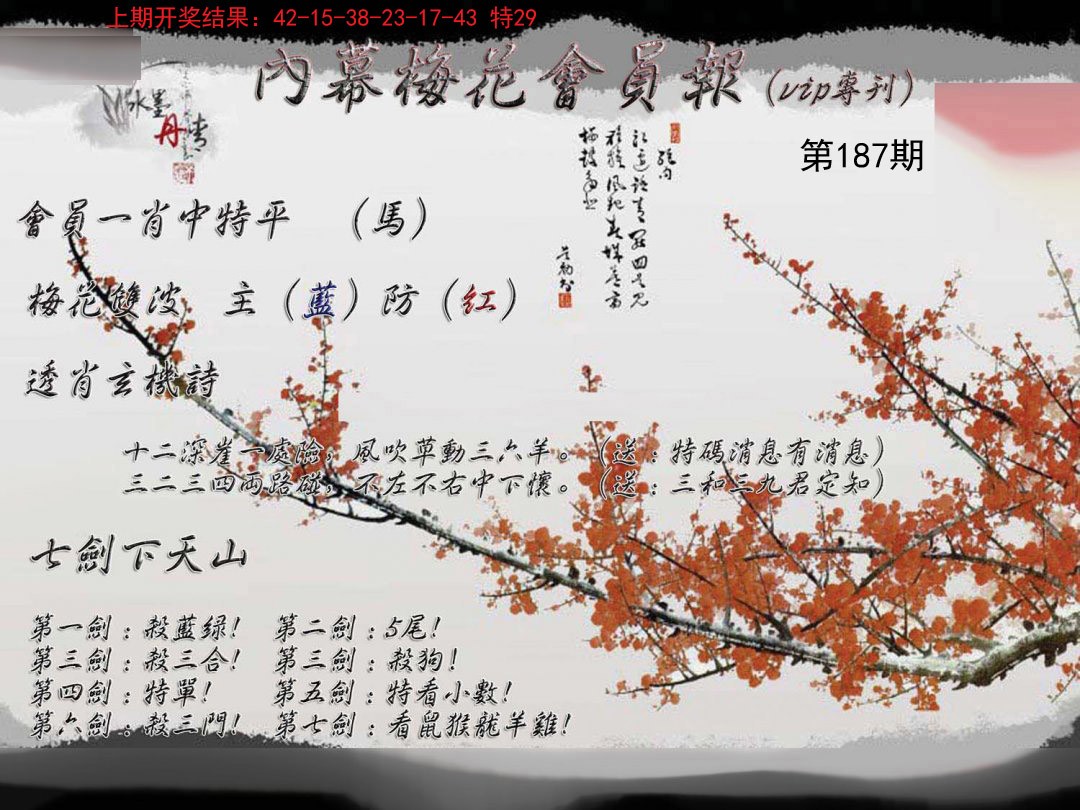 上期开奖结果：42-15-38-23-17-43 特29
內幕梅花會員報（vip專刊）
水墨丹青
第187期
會員一肖中特平 （馬）
梅花雙波 主（藍）防（红）
透肖玄機詩
十二深崖一處險，風吹草動三六羊。（送：特碼消息有消息）
三二三四两路碰，不左不右中下懷。（送：三和三九君定知）
七劍下天山
第一劍：殺藍绿！ 第二劍：5尾！
第三劍：殺三合！ 第三劍：殺狗！
第四劍：特單！ 第五劍：特看小數！
第六劍：殺三門！ 第七劍：看鼠猴龍羊雞！